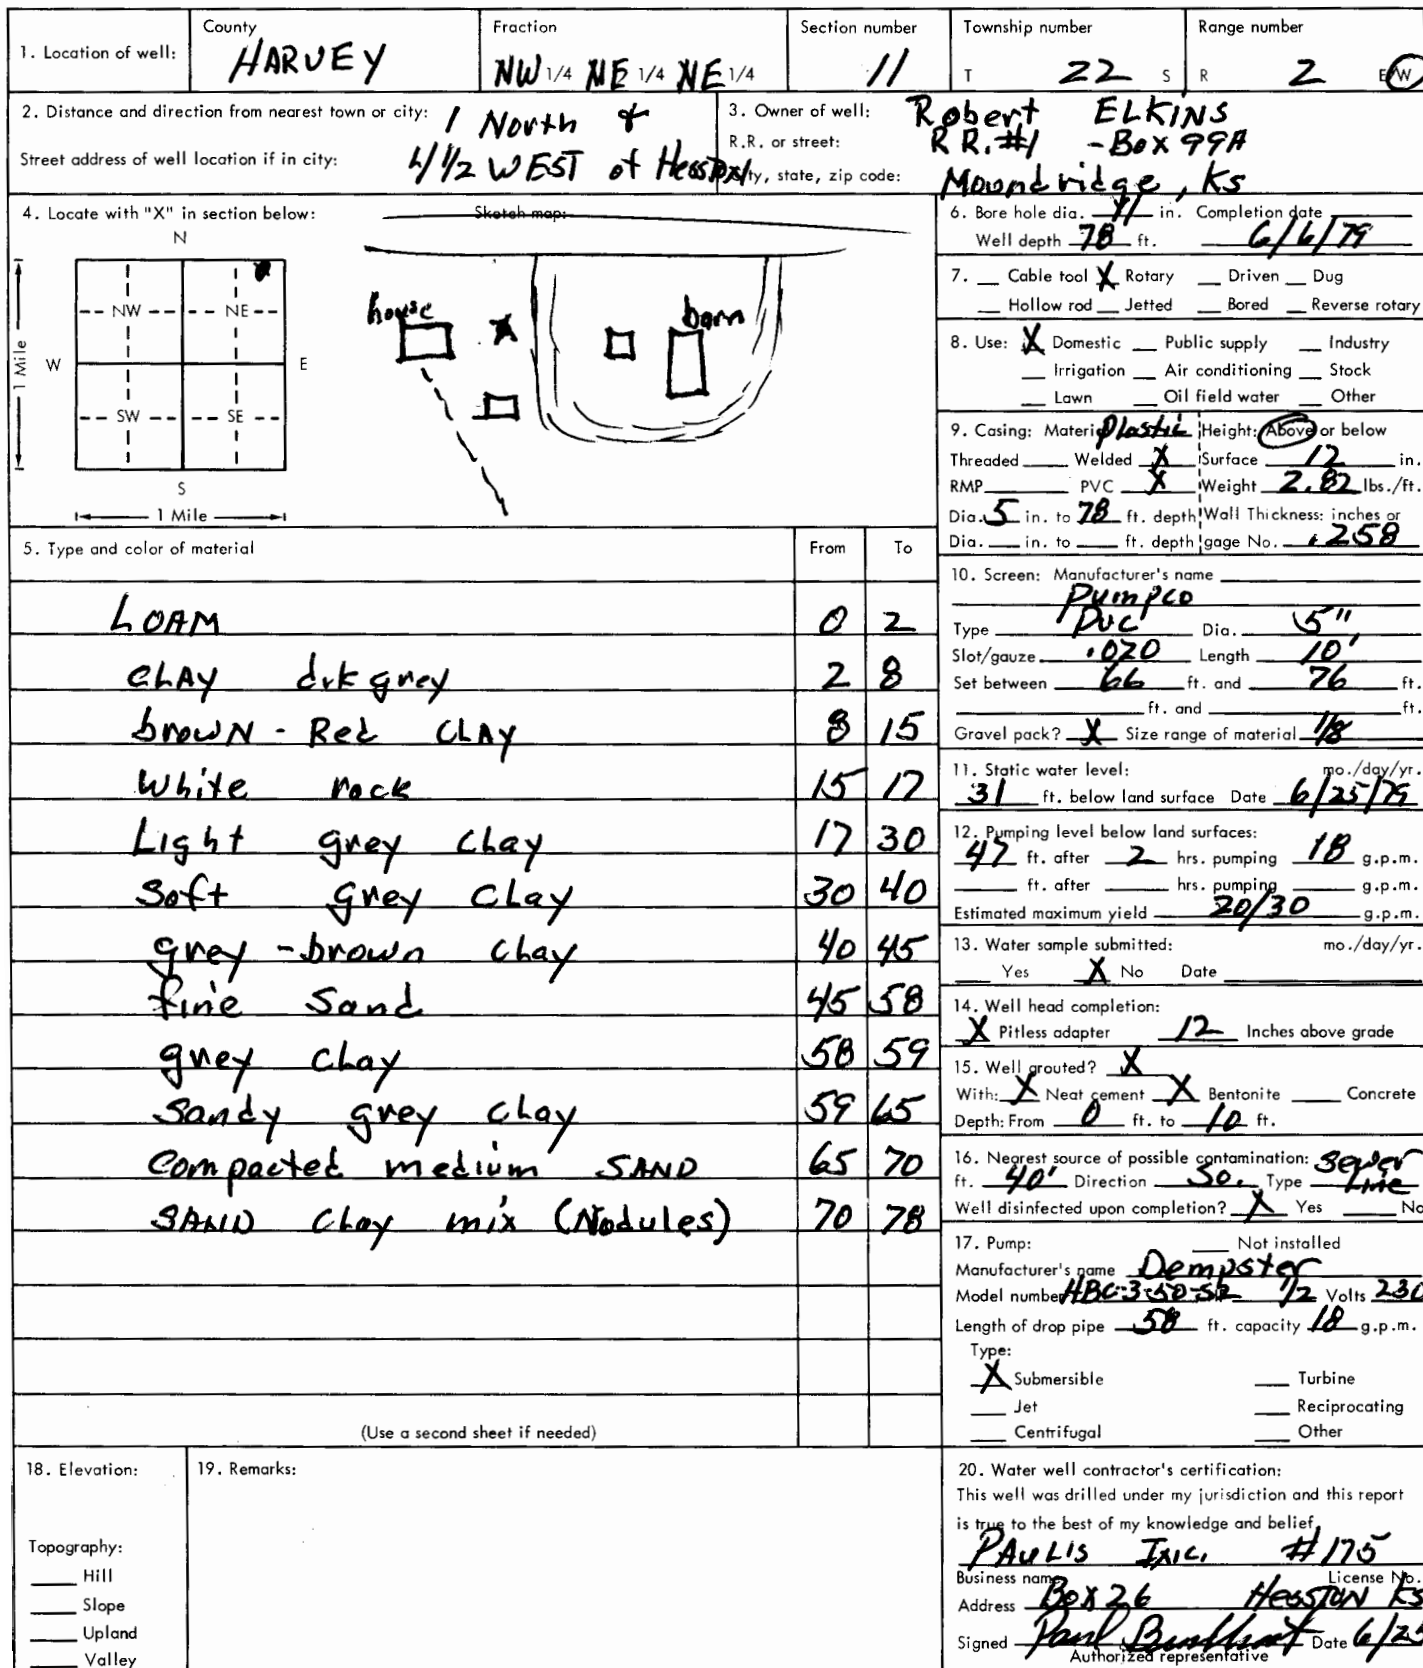 1. Location of well: County HARVEY Fraction NW 1/4 NE 1/4 NE 1/4 Section number 11 Township number T 22 S Range number R 2 E/W
2. Distance and direction from nearest town or city: 1 North &
Street address of well location if in city: 4 1/2 WEST of Hesston
3. Owner of well: Robert ELKINS
R.R. or street: R R. #1 - Box 99A
City, state, zip code: Moundridge, Ks
4. Locate with "X" in section below: Sketch map:
N
NW NE
W E
SW SE
S
1 Mile
1 Mile
house X barn
5. Type and color of material From To
LOAM 0 2
CLAY drk grey 2 8
brown - Red CLAY 8 15
White rock 15 17
Light grey Clay 17 30
Soft grey Clay 30 40
grey - brown Clay 40 45
fine Sand 45 58
grey Clay 58 59
Sandy grey Clay 59 65
Compacted medium SAND 65 70
SAND Clay mix (Nodules) 70 78
(Use a second sheet if needed)
6. Bore hole dia. in. Completion date
Well depth 78 ft. 6/6/79
7. __ Cable tool X Rotary __ Driven __ Dug
__ Hollow rod __ Jetted __ Bored __ Reverse rotary
8. Use: X Domestic __ Public supply __ Industry
__ Irrigation __ Air conditioning __ Stock
__ Lawn __ Oil field water __ Other
9. Casing: Material Plastic Height: Above or below
Threaded ____ Welded X Surface 12 in.
RMP ____ PVC X Weight 2.82 lbs./ft.
Dia. 5 in. to 78 ft. depth Wall Thickness: inches or
Dia. __ in. to __ ft. depth gage No. .258
10. Screen: Manufacturer's name
Pumpco
Type PVC Dia. 5"
Slot/gauze .020 Length 10'
Set between 66 ft. and 76 ft.
____ ft. and ____ ft.
Gravel pack? X Size range of material 1/8
11. Static water level: mo./day/yr.
31 ft. below land surface Date 6/25/79
12. Pumping level below land surfaces:
47 ft. after 2 hrs. pumping 18 g.p.m.
____ ft. after ____ hrs. pumping ____ g.p.m.
Estimated maximum yield 20/30 g.p.m.
13. Water sample submitted: mo./day/yr.
__ Yes X No Date ____
14. Well head completion:
X Pitless adapter 12 Inches above grade
15. Well grouted? X
With: X Neat cement X Bentonite __ Concrete
Depth: From 0 ft. to 10 ft.
16. Nearest source of possible contamination: Sewer
ft. 40' Direction So. Type Line
Well disinfected upon completion? X Yes __ No
17. Pump: __ Not installed
Manufacturer's name Dempster
Model number 1/2 Volts 230
Length of drop pipe 58 ft. capacity 18 g.p.m.
Type:
X Submersible __ Turbine
__ Jet __ Reciprocating
__ Centrifugal __ Other
18. Elevation:
Topography:
__ Hill
__ Slope
__ Upland
__ Valley
19. Remarks:
20. Water well contractor's certification:
This well was drilled under my jurisdiction and this report
is true to the best of my knowledge and belief.
PAULS INC. #175
Business name License No.
Address Box 26 Hesston Ks
Signed Paul Date 6/25
Authorized representative